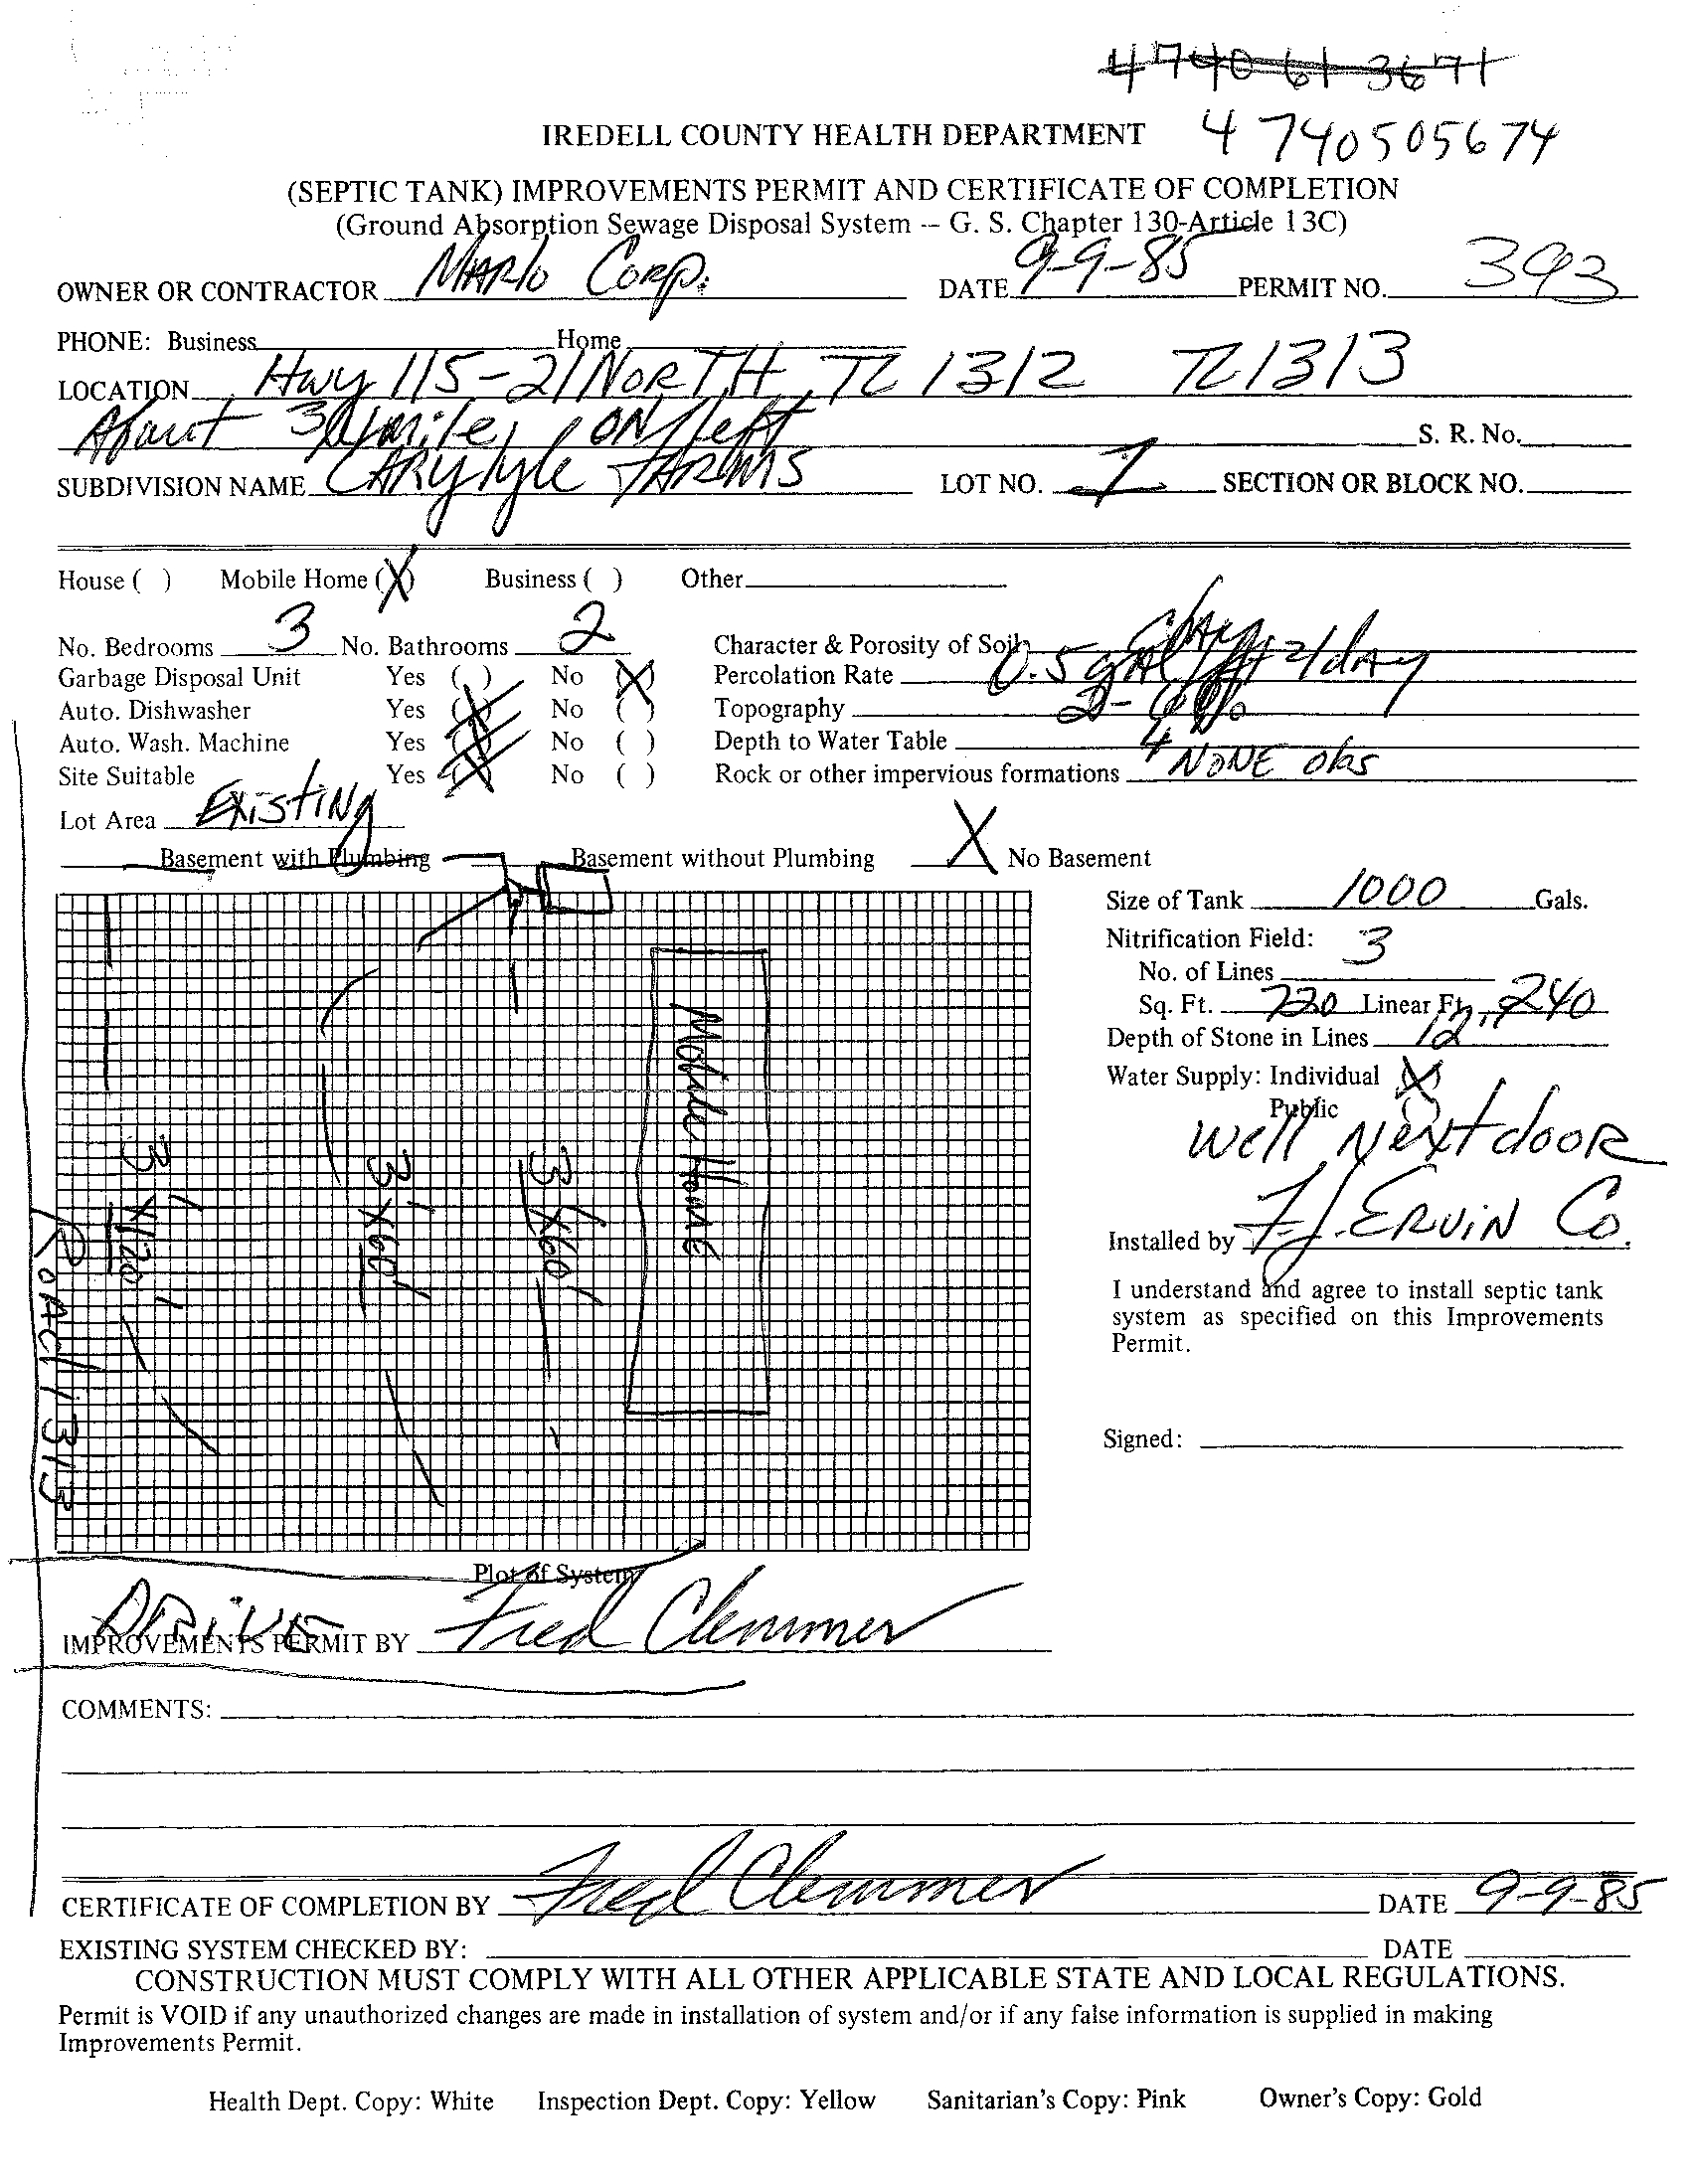 4740 61 3671
IREDELL COUNTY HEALTH DEPARTMENT 4 740505674
(SEPTIC TANK) IMPROVEMENTS PERMIT AND CERTIFICATE OF COMPLETION
(Ground Absorption Sewage Disposal System -- G. S. Chapter 130-Article 13C)
OWNER OR CONTRACTOR MARlo CORP. DATE 9-9-85 PERMIT NO. 393
PHONE: Business Home
LOCATION Hwy 115-21 NORTH, TL 1312 TL 1313
About 3/4 mile, ON left S. R. No.
SUBDIVISION NAME CARylyle FARMS LOT NO. 1 SECTION OR BLOCK NO.
House ( ) Mobile Home (X) Business ( ) Other
No. Bedrooms 3 No. Bathrooms 2 Character & Porosity of Soil clay
Garbage Disposal Unit Yes ( ) No (X) Percolation Rate 0.5 gAl/ft2/dAy
Auto. Dishwasher Yes (X) No ( ) Topography
Auto. Wash. Machine Yes (X) No ( ) Depth to Water Table
Site Suitable Yes (X) No ( ) Rock or other impervious formations NONE obs
Lot Area ExistiNg
Basement with Plumbing Basement without Plumbing X No Basement
Size of Tank 1000 Gals.
Nitrification Field: 3
No. of Lines
Sq. Ft. 720 Linear Ft. 240
Depth of Stone in Lines 12"
Water Supply: Individual (X)
Public
Well Next dooR
Installed by F.J. ERViN Co.
I understand and agree to install septic tank
system as specified on this Improvements
Permit.
Signed:
Mobile HomE
3' x 60'
3' x 60'
3' x 120'
RoAd 1313
Plot of System
DRiVE
IMPROVEMENTS PERMIT BY Fred Clemmer
COMMENTS:
CERTIFICATE OF COMPLETION BY Fred Clemmer DATE 9-9-85
EXISTING SYSTEM CHECKED BY: DATE
CONSTRUCTION MUST COMPLY WITH ALL OTHER APPLICABLE STATE AND LOCAL REGULATIONS.
Permit is VOID if any unauthorized changes are made in installation of system and/or if any false information is supplied in making
Improvements Permit.
Health Dept. Copy: White Inspection Dept. Copy: Yellow Sanitarian's Copy: Pink Owner's Copy: Gold